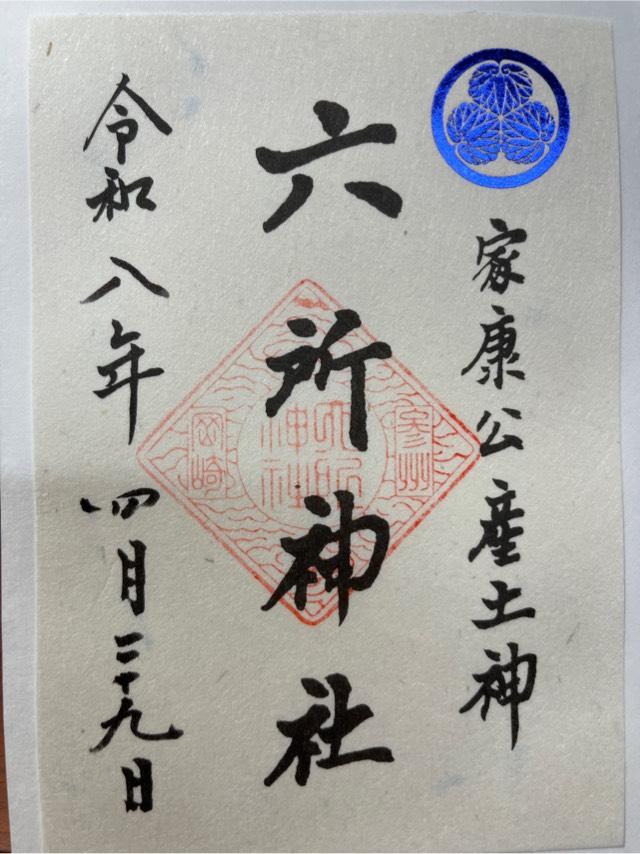 家康公産土神
六所神社
参州
六所
神社
岡崎
令和八年四月二十九日